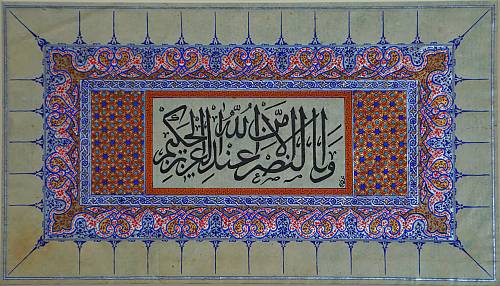 وما النصر الا من عند الله العزيز الحكيم